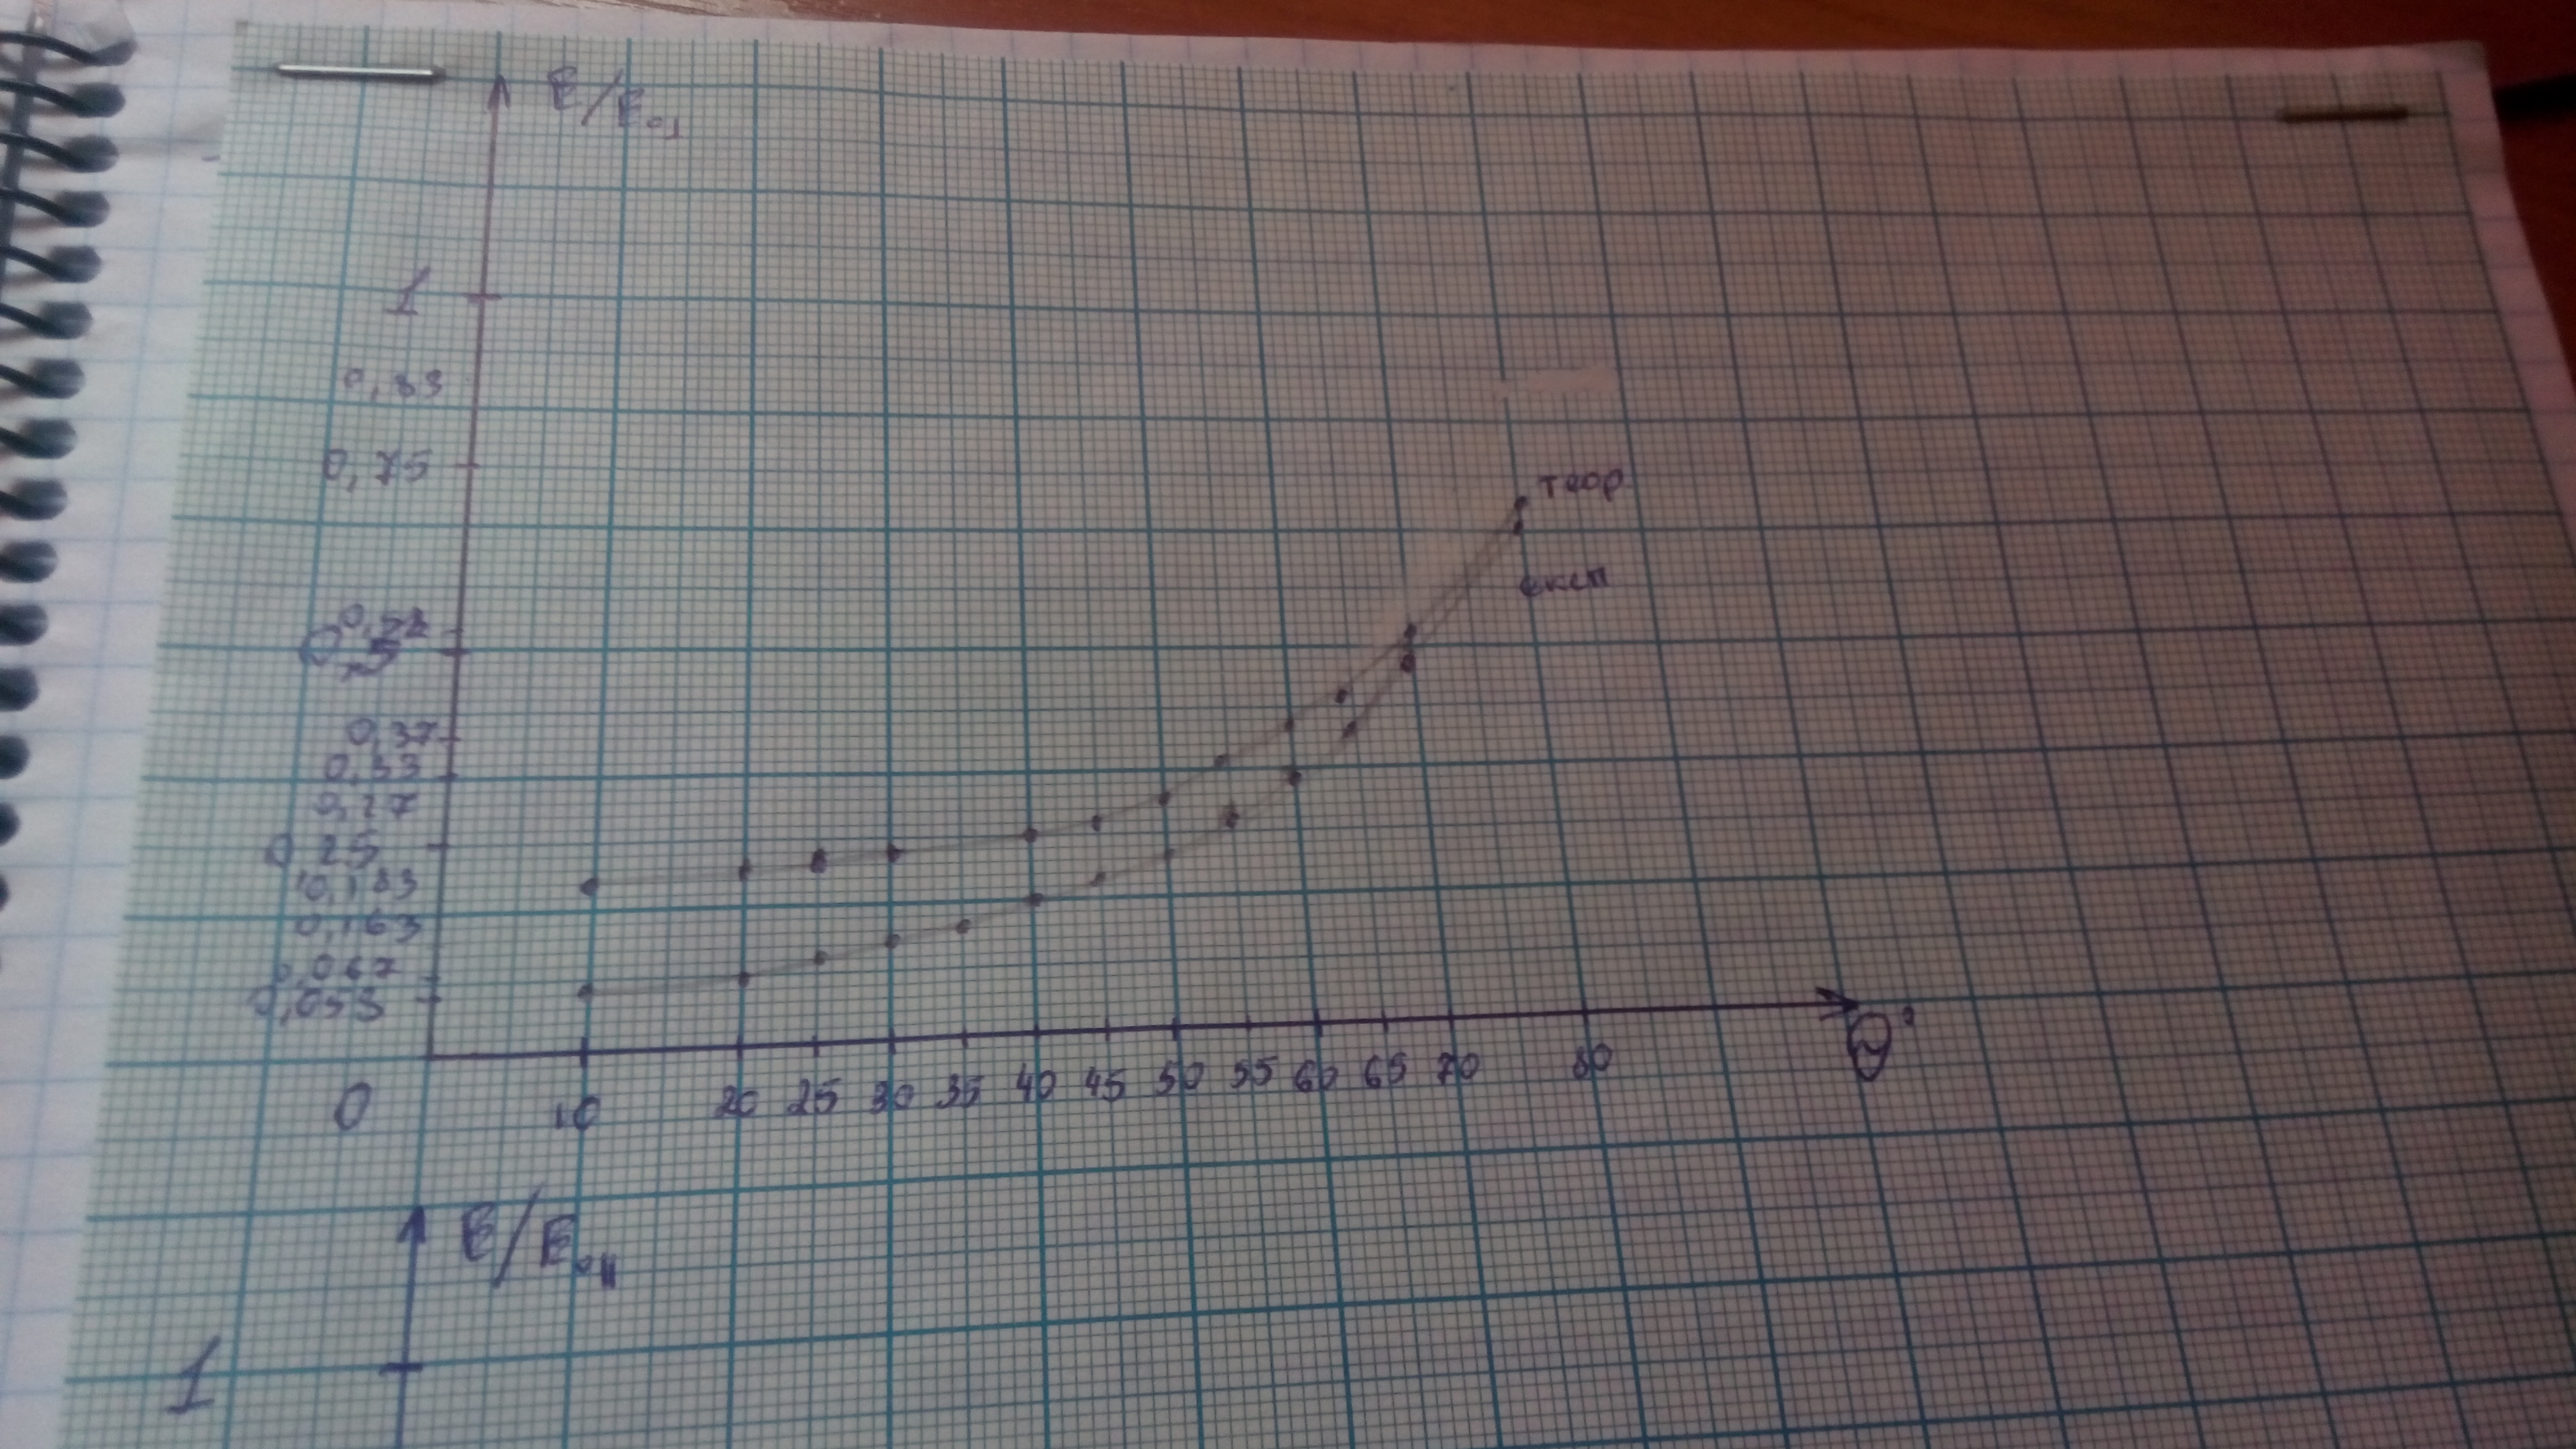 E/E₀⊥
1
0,83
0,75
теор.
експ
0,5
0,37
0,33
0,27
0,25
0,183
0,163
0,067
0,053
0 10 20 25 30 35 40 45 50 55 60 65 70 80 Θ°
E/E₀||
1